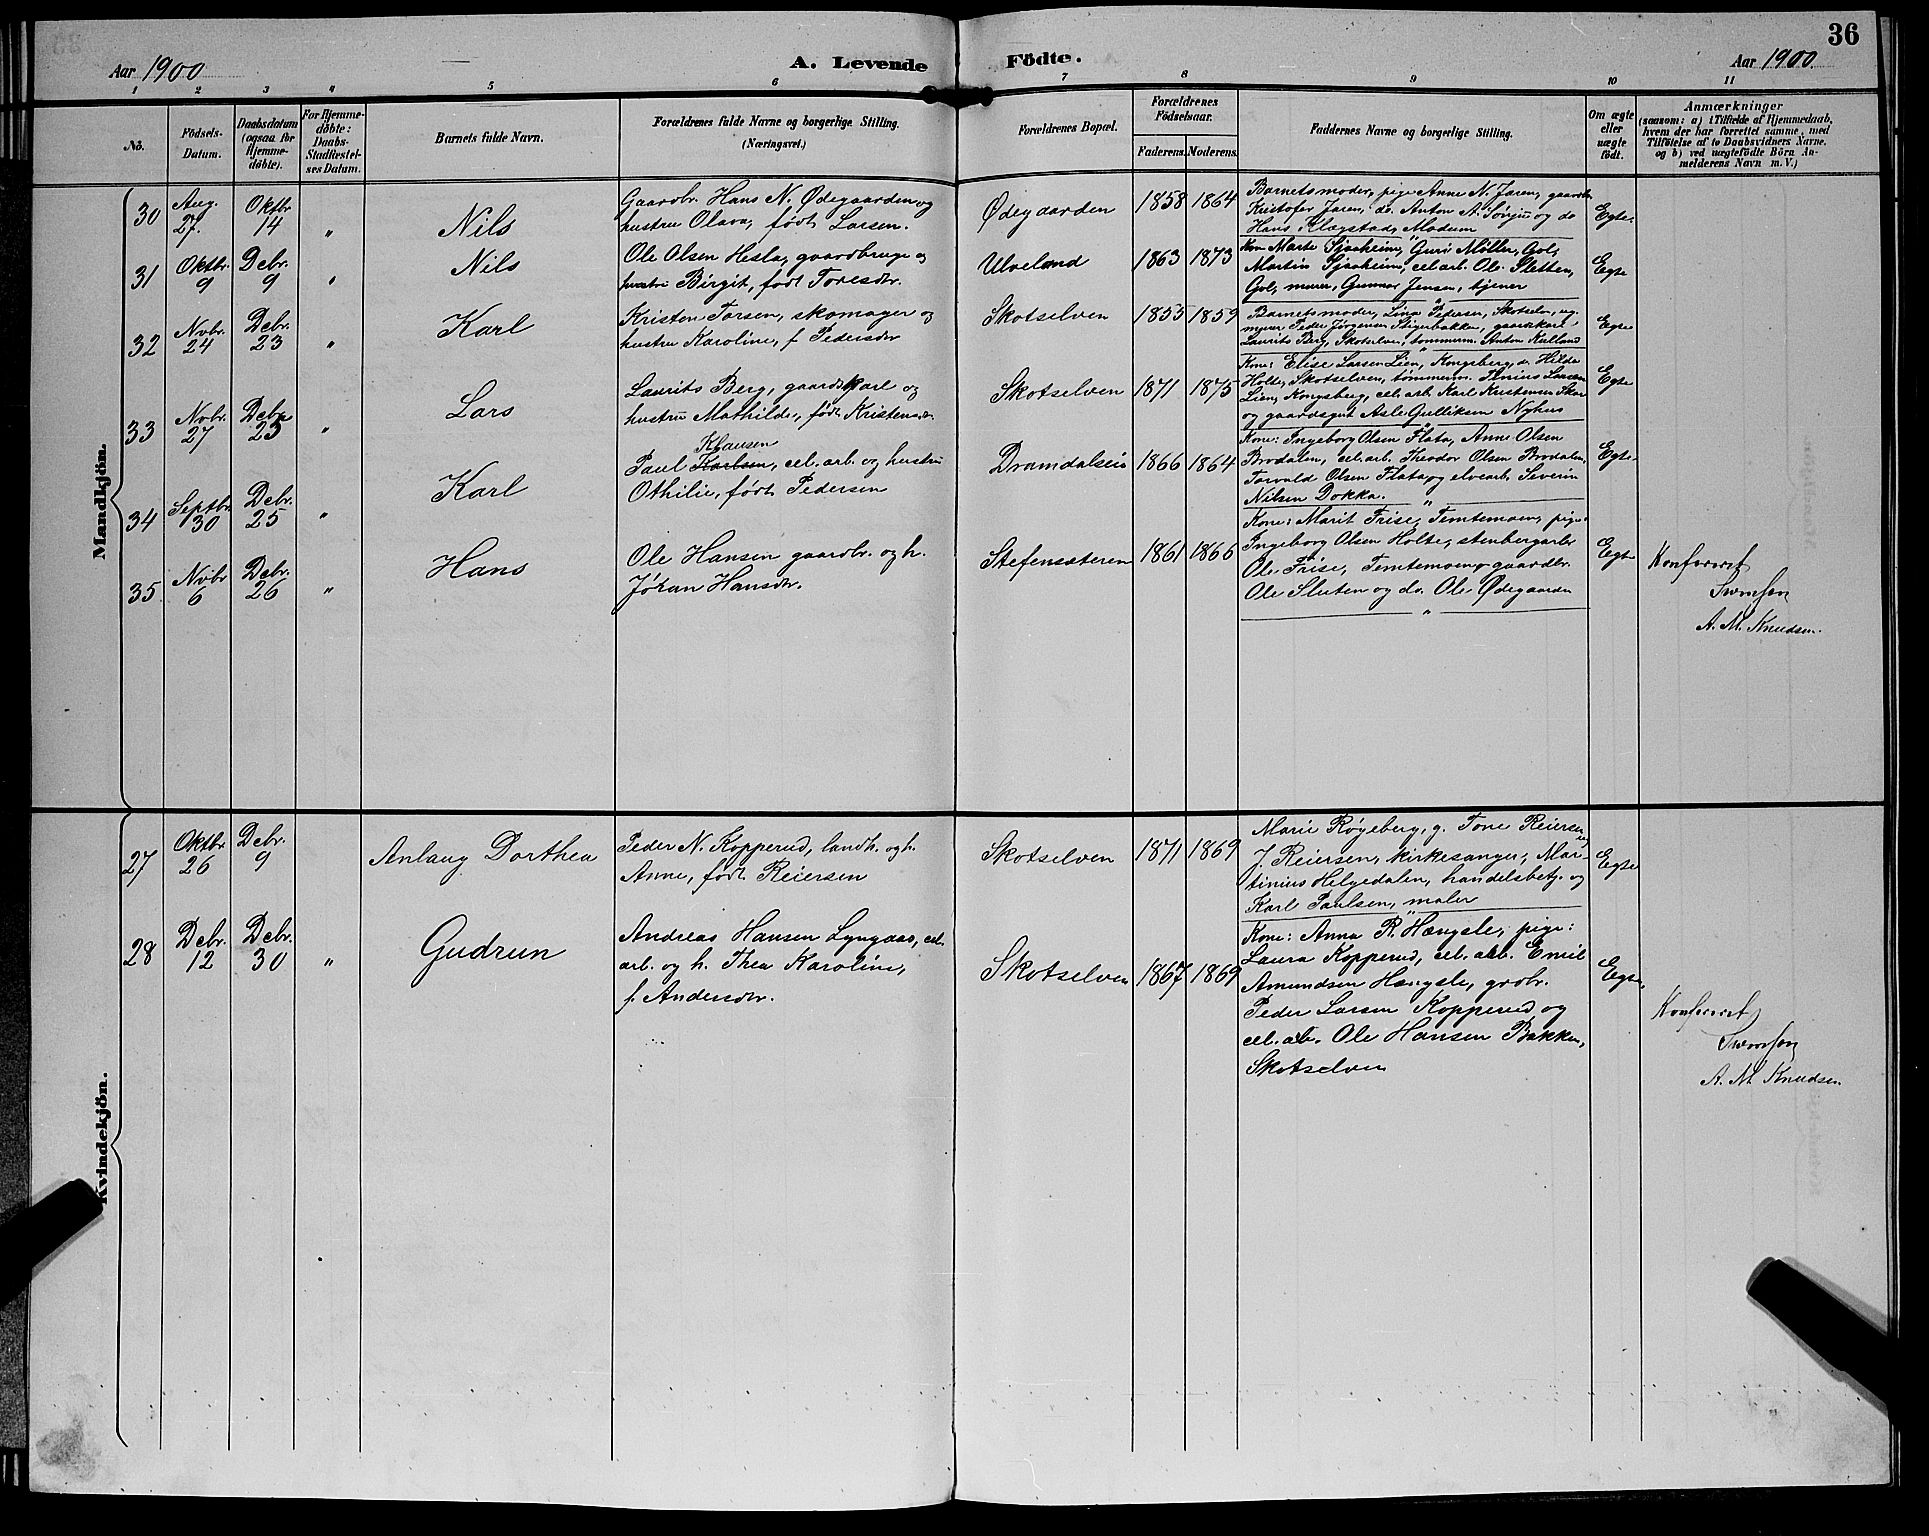 36
Aar 1900
A. Levende Födte.
Aar 1900
1 2 3 4 5 6 7 8 9 10 11
No.
Födsels-Datum.
Daabsdatum (ogsaa for Hjemme-döbte).
For Hjemme-döbte: Daabs-Stadfæstel-ses Datum.
Barnets fulde Navn.
Forældrenes fulde Navne og borgerlige Stilling.
(Næringsvei.)
Forældrenes Bopæl.
Forældrenes Födselsaar.
Faderens. Moderens.
Faddernes Navne og borgerlige Stilling.
Om ægte eller uægte født.
Anmærkninger
(saasom: a) i Tilfælde af Hjemmedaab,
hvem der har forrettet samme, med
Tilföielse af to Daabsvidners Navne,
og b) ved uægtefödte Börn An-
melderens Navn m. V.)
Mandkjön.
30 Aug. 27. Oktbr 14 „ Nils
Gaardbr. Hans N. Ødegaarden og
hustru Olava, født Larsen.
Ødegaarden 1858 1864
Barnets moder, pige Anne N. Jaren, gaardbr.
Kristofer Jaren, do. Anton A. Sørgju og do
Hans Klogstad, Modum
Egte.
31 Oktbr. 9 Debr. 9 „ Nils
Ole Olsen Hesla, gaardbruger og
hustru Birgit, født Toresdtr.
Ulveland 1863 1873
Kone Marte Sjaaheim, Guri Møller, Gol,
Martin Sjaaheim, cel. arb. Ole Sletten,
Gol, murer, Gunnar Jensen, tjener
Egte
32 Novbr. 24 Debr. 23 „ Karl
Kristen Torsen, skomager og
hustru Karoline, f. Pedersdtr
Skotselven 1855 1859
Barnets moder, Lina Petersen, Skotselv, ug.
murer Peder Jørgensen Stigerbakken, gaardskarl
Laurits Berg, Skotselven, tømmerm. Anton Kulland
Egte
33 Novbr. 27 Debr 25 „ Lars
Laurits Berg, gaardskarl og
hustru Mathilde, født Kristensdtr.
Skotselven 1871 1875
Kone: Elise Larsen Lien, Kongsberg, do. Hilda
Holte, Skotselven, tømmerm. Thinius Larsen
Lien, Kongsberg, cel. arb. Karl Kristensen Skar
og gaardsgut Asle Gulliksen Nyhus
Egte
34 Septbr. 30 Debr. 25 „ Karl
Klausen
Paul Karlsen, cel. arb. og hustru
Othilie, født Pedersen
Dramdalseie 1866 1864
Kone: Ingeborg Olsen Flata, Anne Olsen
Brodalen, cel. arb. Theodor Olsen Brodalen,
Torvald Olsen Flata og elvearb. Severin
Nilsen Dokka.
Egte.
35 Novbr 6 Debr. 26 „ Hans
Ole Hansen gaardbr. og h.
Jøran Hansdtr.
Stefensæteren 1861 1865
Kone: Marit Frise, Temtemoen, pige:
Ingeborg Olsen Holte, stenbergarbr
Ole Frise, Temtemoen, gaardbr.
Ole Sluten og do. Ole Ødegaarden
Egte
Konfereret
A. M. Knudsen.
Kvindekjön.
27 Oktbr 26 Debr. 9 Anlaug Dorthea
Peder N. Kopperud, landh. og h.
Anne, født Reiersen
Skotselven 1871 1869
Marie Røgeberg, g. Tone Reiersen
J. Reiersen, kirkesanger, Mar-
tinius Helgedalen, handelsbetj. og
Karl Paulsen, maler
Egte
28 Debr. 12 Debr. 30 „ Gudrun
Andreas Hansen Lyngaas, cel.
arb. og h. Thea Karoline,
f. Andersdtr.
Skotselven 1867 1869
Kone: Anna R. Hængsle, pige:
Laura Kopperud, cel. arb. Emil
Amundsen Hængsle, grdbr.
Peder Larsen Kopperud og
cel. arb. Ole Hansen Bakken,
Skotselven
Egte.
Konfereret
A. M. Knudsen